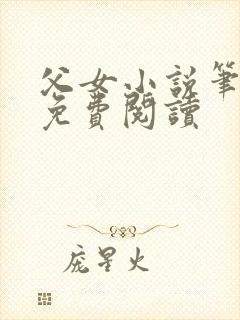 父女小説筆
免費閱讀
庞星火